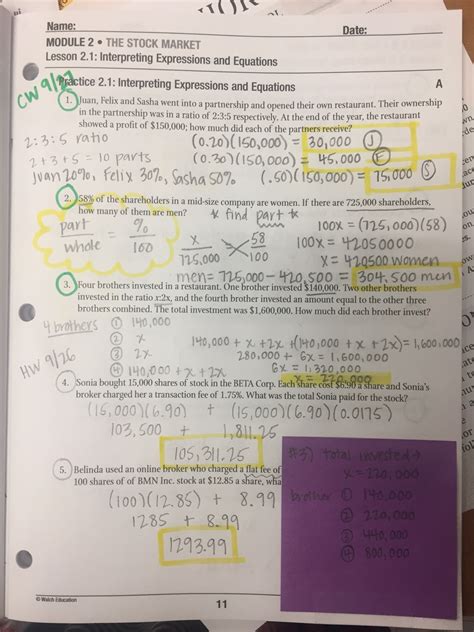 Name:
Date:
MODULE 2 • THE STOCK MARKET
Lesson 2.1: Interpreting Expressions and Equations
CW 9/27
Practice 2.1: Interpreting Expressions and Equations
A
1. Juan, Felix and Sasha went into a partnership and opened their own restaurant. Their ownership
in the partnership was in a ratio of 2:3:5 respectively. At the end of the year, the restaurant
showed a profit of $150,000; how much did each of the partners receive?
2:3:5 ratio
(0.20)(150,000) = 30,000 J
2+3+5 = 10 parts
(0.30)(150,000) = 45,000 F
Juan 20%, Felix 30%, Sasha 50%
(.50)(150,000) = 75,000 S
2. 58% of the shareholders in a mid-size company are women. If there are 725,000 shareholders,
how many of them are men?
* find part *
100x = (725,000)(58)
part/whole = %/100
x/725,000
58/100
100x = 42050000
x = 420500 women
men = 725,000 - 420,500 = 304,500 men
3. Four brothers invested in a restaurant. One brother invested $140,000. Two other brothers
invested in the ratio x:2x, and the fourth brother invested an amount equal to the other three
brothers combined. The total investment was $1,600,000. How much did each brother invest?
4 brothers
① 140,000
② x
③ 2x
④ 140,000 + x + 2x
140,000 + x + 2x + (140,000 + x + 2x) = 1,600,000
280,000 + 6x = 1,600,000
6x = 1,320,000
x = 220,000
HW 9/26
4. Sonia bought 15,000 shares of stock in the BETA Corp. Each share cost $6.90 a share and Sonia's
broker charged her a transaction fee of 1.75%. What was the total Sonia paid for the stock?
(15,000)(6.90) + (15,000)(6.90)(0.0175)
103,500 + 1,811.25
105,311.25
5. Belinda used an online broker who charged a flat fee of
100 shares of of BMN Inc. stock at $12.85 a share, wha
(100)(12.85) + 8.99
1285 + 8.99
1293.99
#3) total invested →
x = 220,000
brother ① 140,000
② 220,000
③ 440,000
④ 800,000
© Walch Education
11